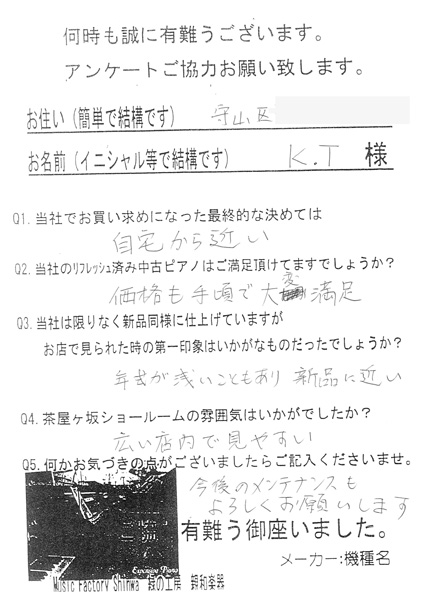 何時も誠に有難うございます。
アンケートご協力お願い致します。
お住い（簡単で結構です） 守山区
お名前（イニシャル等で結構です） K.T 様
Q1. 当社でお買い求めになった最終的な決めては
自宅から近い
Q2. 当社のﾘﾌﾚｯｼｭ済み中古ピアノはご満足頂けてますでしょうか？
価格も手頃で大変満足
Q3. 当社は限りなく新品同様に仕上げていますが
お店で見られた時の第一印象はいかがなものだったでしょうか？
年式が浅いこともあり 新品に近い
Q4. 茶屋ヶ坂ショールームの雰囲気はいかがでしたか？
広い店内で見やすい
Q5. 何かお気づきの点がございましたらご記入くださいませ。
今後のメンテナンスも
よろしくお願いします
有難う御座いました。
Expensive Piano
メーカー:機種名
Music Factory Shinwa 親和楽器